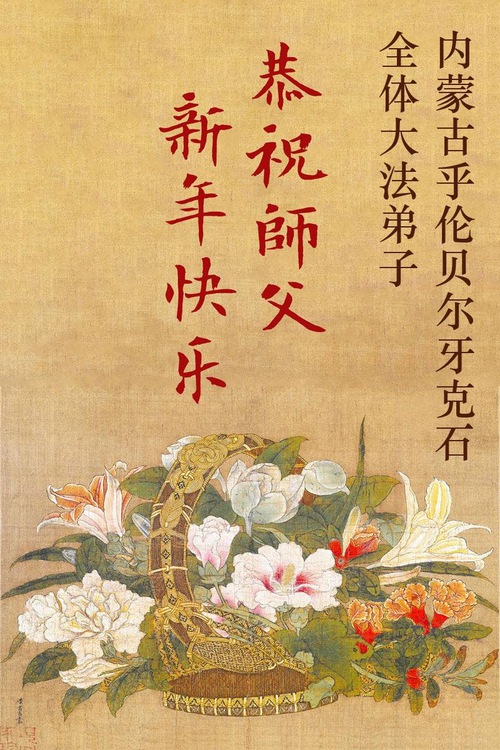 内蒙古乎伦贝尔牙克石
全体大法弟子
恭祝師父
新年快乐